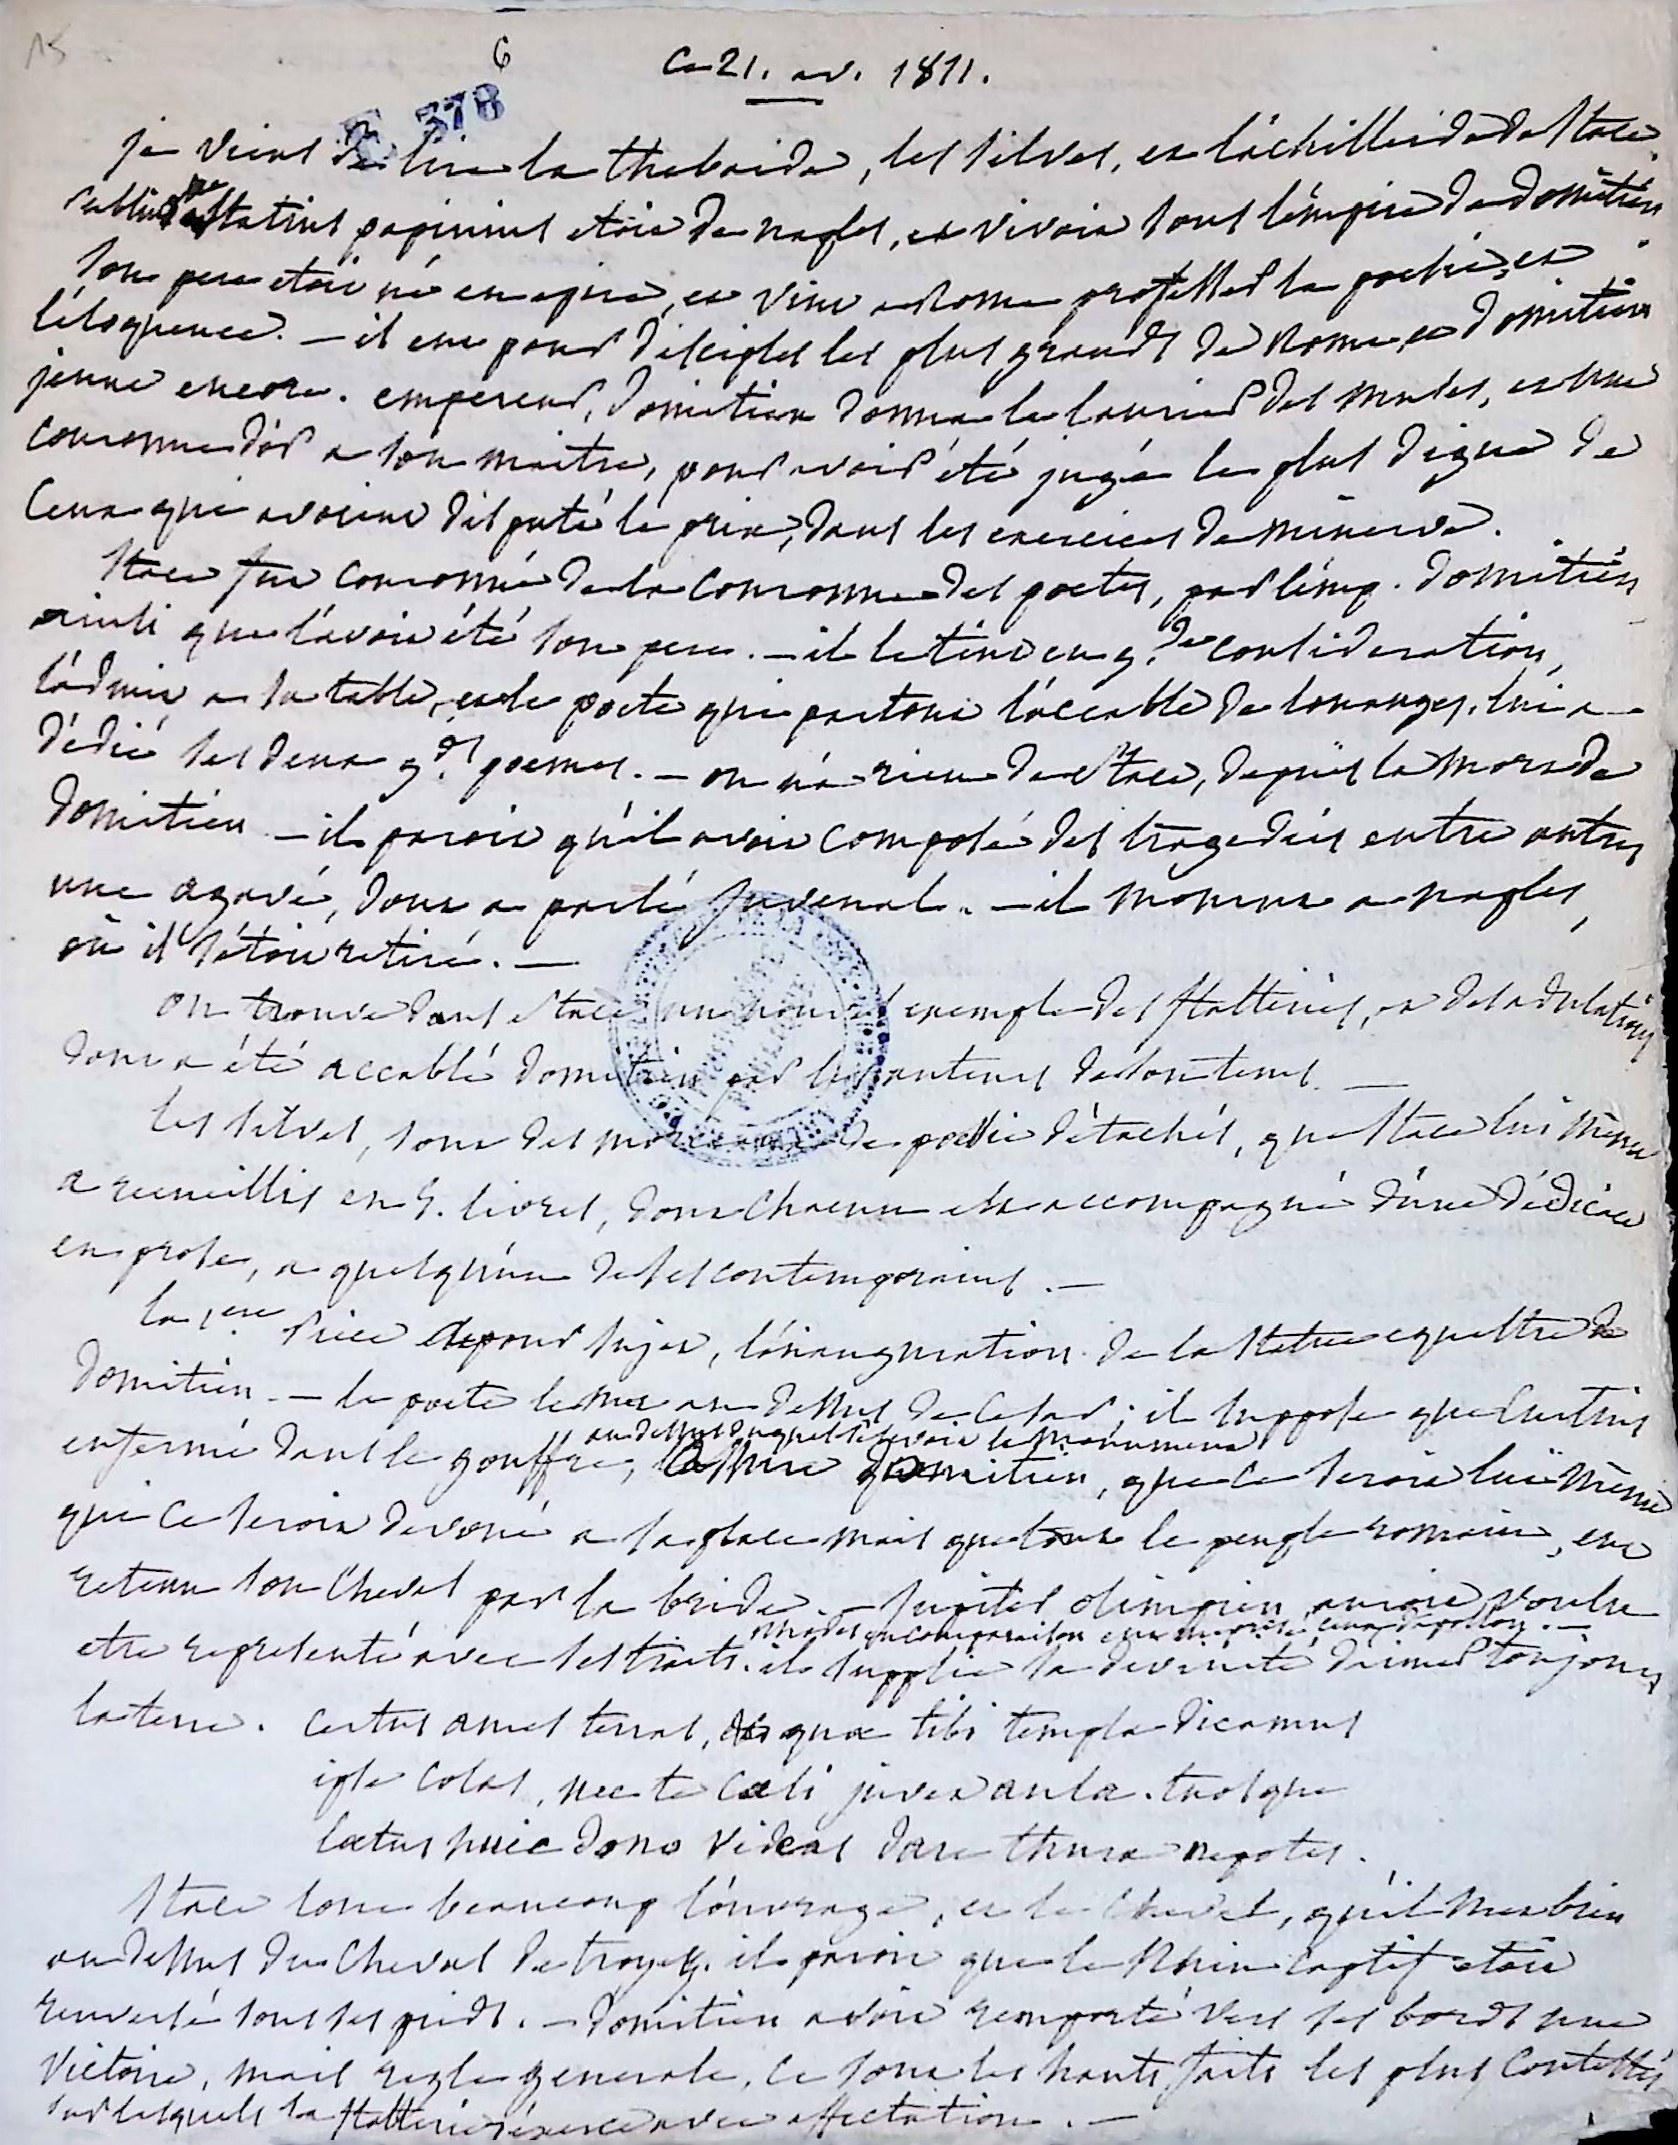 15
6
Ce 21. av. 1811.
378
je viens de lire la thebaide, les silves, et l'achilleide de Stace.
Publius Statius papinius etoit de naples, et vivoit sous l'empire de domitien
son pere etoit né en epire, et vint a Rome professer la poesie, et
l'éloquence. – il eut pour disciples les plus grands de Rome, et domitien
jeune encore. empereur, domitien donna le laurier des muses, et une
couronne d'or a son maitre, pour avoir été jugé le plus digne de
ceux qui avoient disputé le prix, dans les exercices de minerve.
Stace fut couronné de la couronne des poetes, par l'emp. domitien
ainsi que l'avoit été son pere. – il le tint en g.de consideration,
l'admit a sa table, et le poete qui partout l'accable de louanges, lui a
dédié ses deux g.ds poemes. – on n'a rien de Stace, depuis la mort de
domitien – il paroit qu'il avoit composé des tragedies entre autres
une agavé, dont a parlé Juvenal. – il mourut a naples,
où il s'étoit retiré. –
On trouve dans Stace un nouvel exemple des flatteries, et des adulations
dont a été accablé domitien par les auteurs de son tems. –
les silves, sont des morceaux de poesie détachés, que Stace lui même
a recueillis en 5. livres, dont chacun est accompagné d'une dédicace
en prose, a quelqu'un de ses contemporains. –
la 1.ere piece a pour sujet, l'inauguration de la statue equestre de
domitien. – le poete le met au dessus de Cesar; il suppose que Curtius
au dessus duquel s'élevoit le monument
enfermé dans le gouffre, assure domitien, que ce seroit lui même
qui ce seroit devoué a sa place mais que tout le peuple romain, eut
retenu son cheval par la bride. – Jupiter olimpien auroit voulu
rhodes en comparaison eut meprisé ceux d'apollon. –
etre representé avec ses traits. il supplie sa divinité d'aimer toujours
la terre. Certus ames terras, et quae tibi templa dicamus
ipse colas, nec te coeli juvet aula. tuosque
laetus huic dono videas dare thura nepotes.
Stace loue beaucoup l'ouvrage, et le cheval, qu'il met bien
au dessus du cheval de troye. il paroit que le Rhin captif etoit
renversé sous ses pieds. – domitien avoit remporté vers ses bords une
victoire, mais regle generale, ce sont les hauts faits les plus contestés
sur lesquels la flatterie s'exerce avec affectation. –